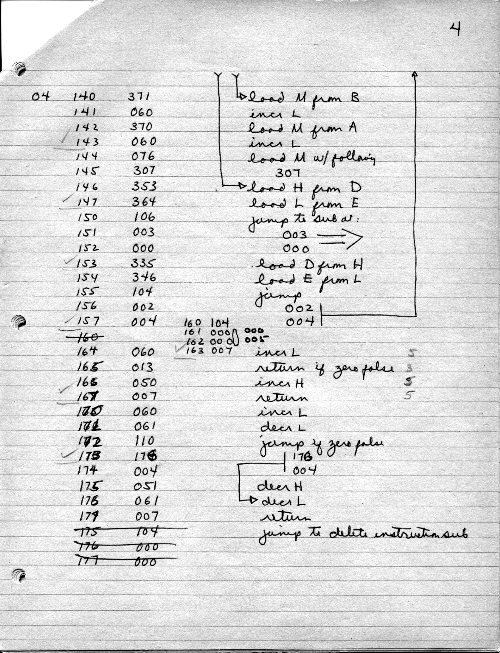 4
04 140 371 load M from B
141 060 incr L
142 370 load M from A
143 060 incr L
144 076 load M w/ following
145 307 307
146 353 load H from D
147 364 load L from E
150 106 jump to sub at:
151 003 003
152 000 000
153 335 load D from H
154 346 load E from L
155 104 jump
156 002 002
157 004 004
160 160 104
161 000 000
162 000 005
163 007
164 060 incr L 5
165 013 return if zero false 3
166 050 incr H 5
167 007 return 5
170 060 incr L
171 061 decr L
172 110 jump if zero false
173 176 176
174 004 004
175 051 decr H
176 061 decr L
177 007 return
175 104 jump to delete instruction sub
176 000
177 000